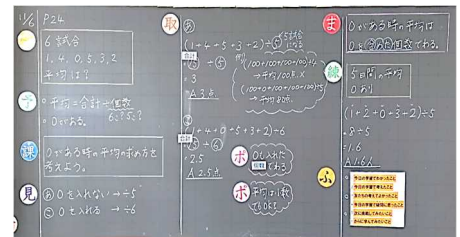 11/6 P.24
6試合
1、4、0、5、3、2
平均は?
予
平均=合計÷個数
6こ?5こ?
0がある。
課
0がある時の平均の求め方を
考えよう。
見
あ 0を入れない→÷5
0を入れる→÷6
取
あ
(1+4+5+3+2)÷5
5試合
になる
合計
÷5
=3
A 3点
(100+100+100+100)÷4
→平均100点
(100+100+100+100+0)÷5
→平均80点
(1+4+0+5+3+2)÷6
合計
÷6
=2.5
A 2.5点
ポ
0も入れた
個数でわる
ポ
平均は小数
でもOK
ま
0がある時の平均は
0をふくめた個数でわる。
練
5日間の平均
0あり
(1+2+0+3+2)÷5
=8÷5
=1.6
A 1.6人
ふ
今日の学習でわかったこと
今日の学習で考えたこと
友だちの考えでよかったこと
今日の学習で疑問に思ったこと
次に挑戦してみたいこと
さらに学んでみたいこと